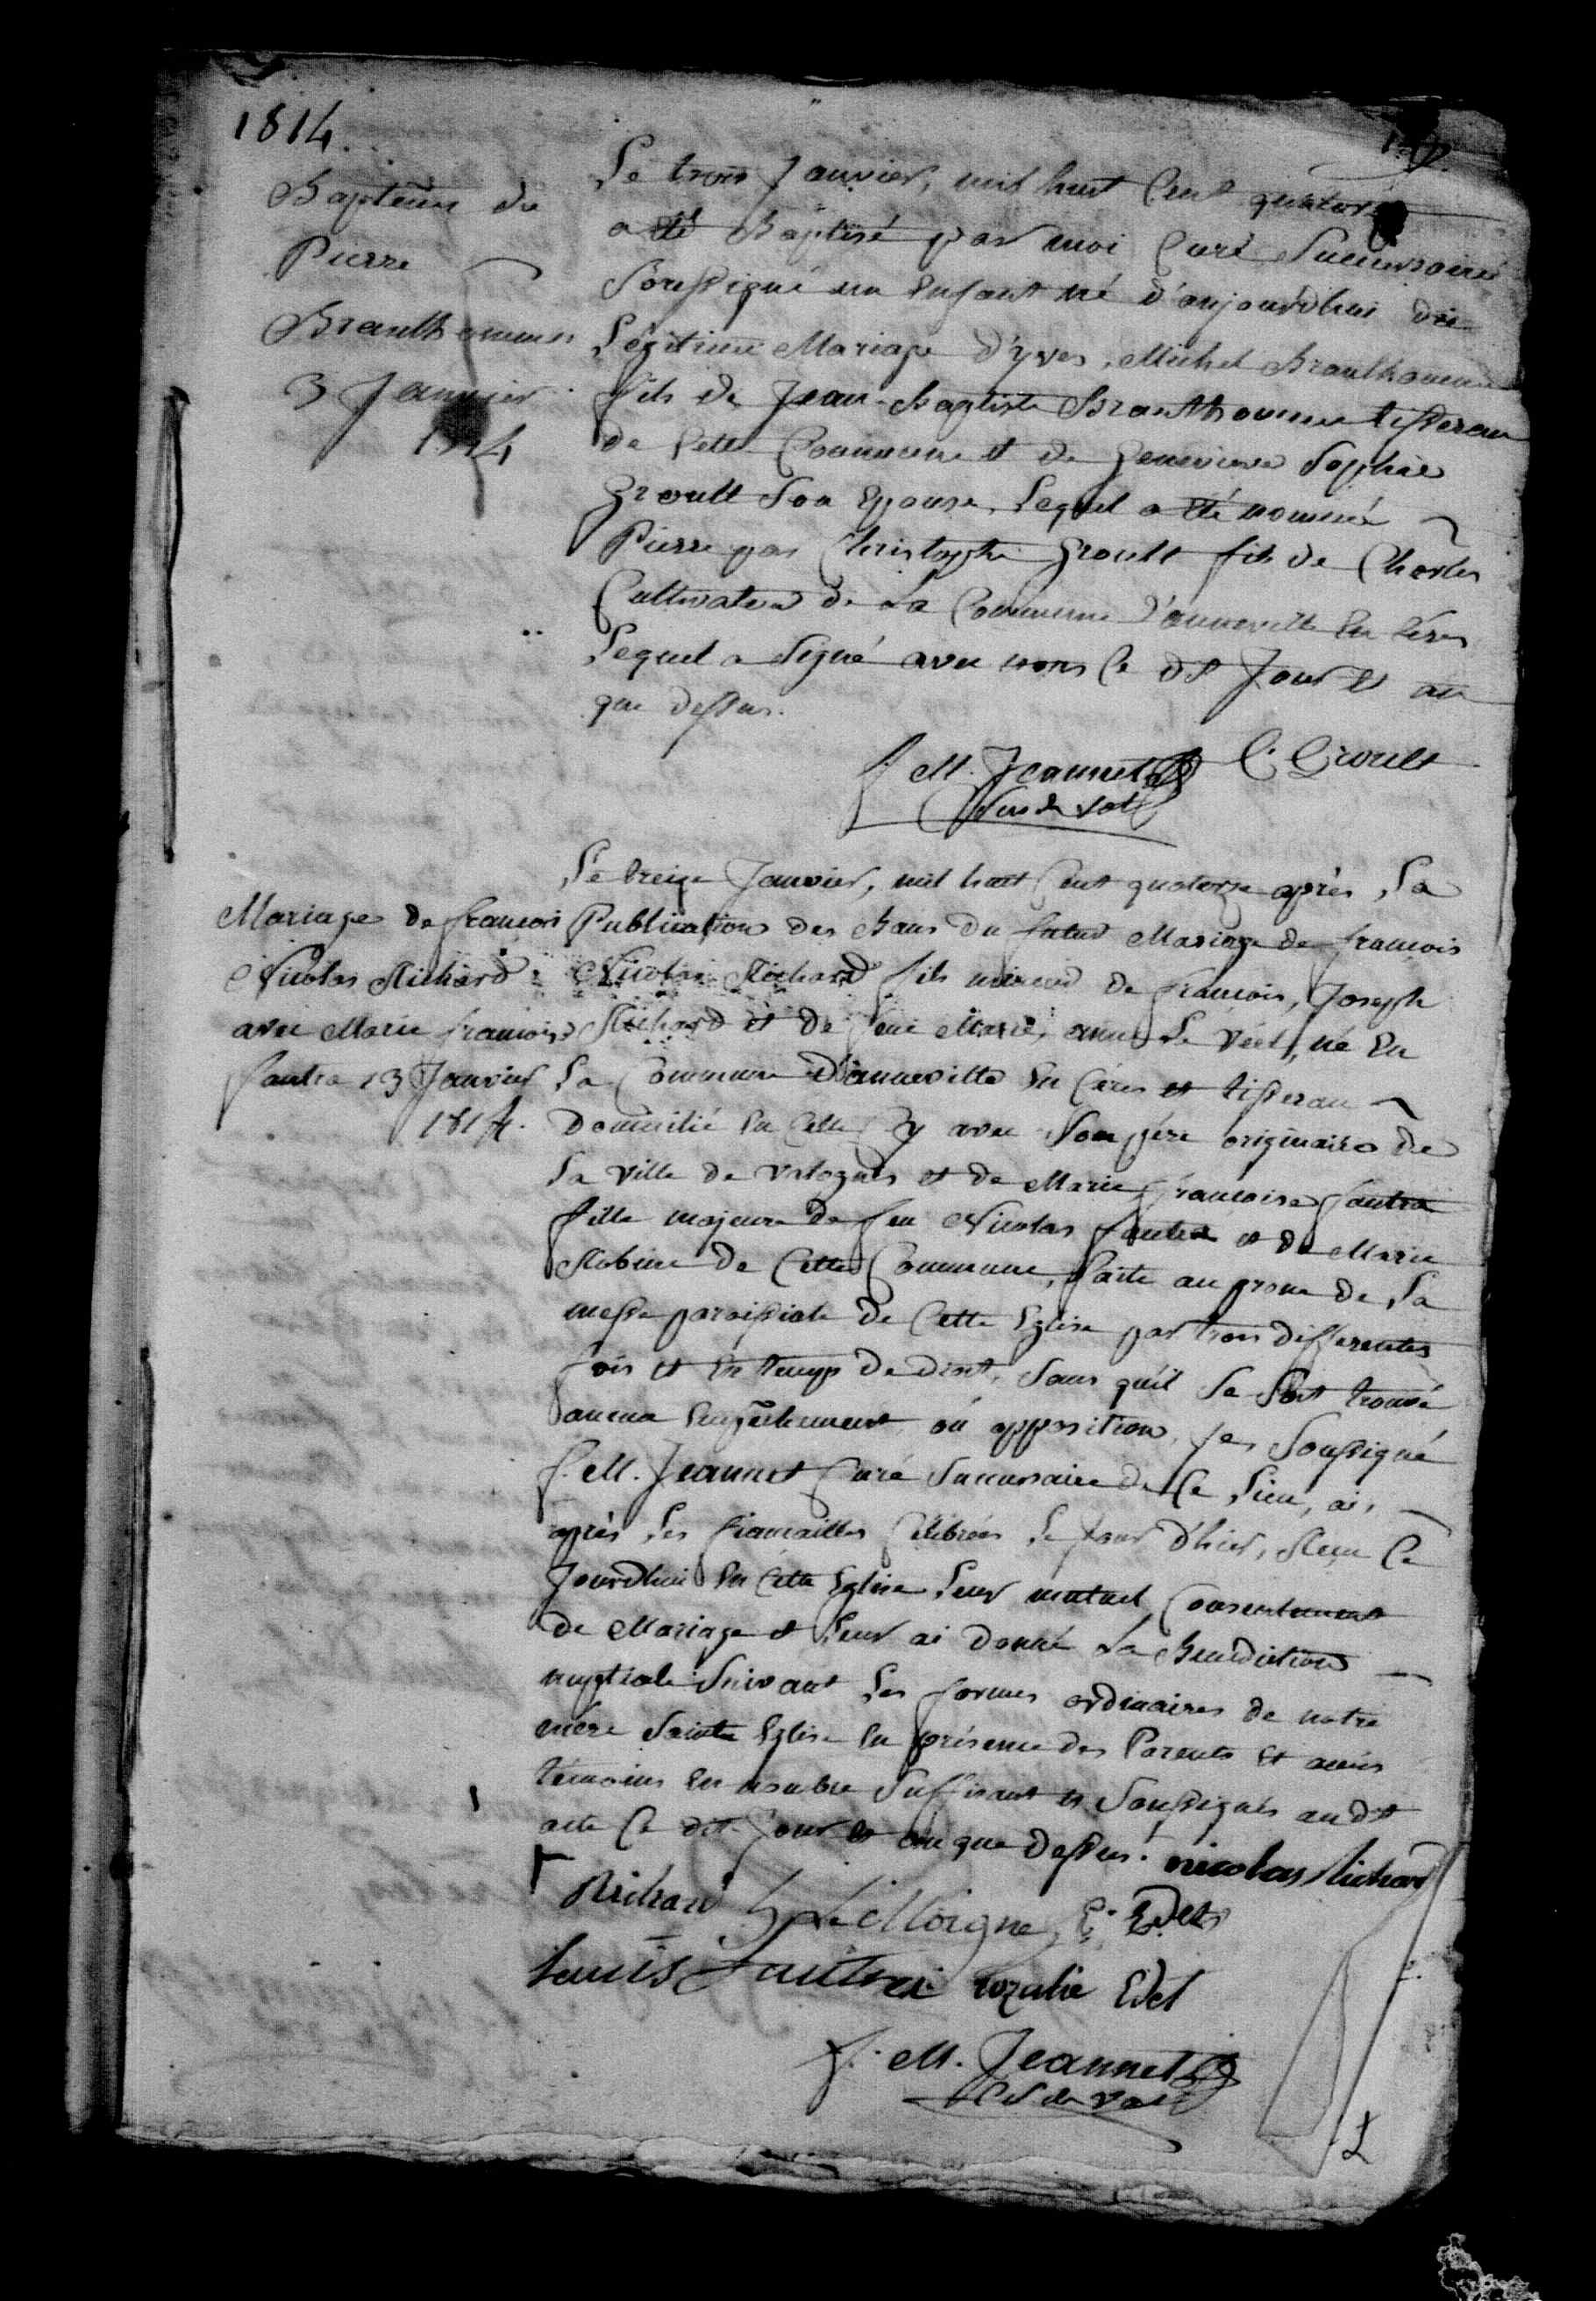 1814.
Bapteme de
Pierre
Branthomme
3 Janvier
1814
Le trois Janvier, mil huit Cent quatorze
a été Baptisé par moi Curé Succursaire
Soussigné un Enfant né d'aujourdhui du
Légitime Mariage d'yves, Michel Branthomme
fils de Jean-Baptiste Branthomme tisseran
de Cette Commune et de Genevieve Sophie
Groult Son Epouse, Lequel a été nommé
Pierre par Christophe Groult fils de Charles
Cultivateur de La Commune d'anneville En Céres
Lequel a Signé avec nous Ce dt Jour et an
que dessus.
f. M. Jeannet C. Groult
Mariage de francois
Nicolas Richard
avec Marie francoise
fautra 13 Janvier
1814.
Le treize Janvier, mil huit Cent quatorze après La
Publication des Bans du futur Mariage de francois
Nicolas Richard fils mineur de francois, Joseph
Richard et de feue Marie, anne Le Véel, né En
La Commune D'anneville En Céres et tisseran
Domicilié En Cette Cy avec Son père originaire de
La ville de Valognes et de Marie francoise fautra
fille majeure de feu Nicolas fautra et de Marie
Robine de Cette Commune, faite au prone de La
messe paroissiale de Cette Eglise par trois differentes
fois et En temps de droit, Sans qu'il Se Soit trouvé
aucun Empechement ou opposition, je Soussigné
f. M. Jeannet Curé Succursaire de Ce Lieu, ai,
après Les fiancailles Célébrées Le jour d'hier, Recu Ce
Jourdhui En Cette Eglise Leur mutuel Consentement
de Mariage et Leur ai donné La Benediction
nuptiale Suivant Les formes ordinaires de notre
mère Sainte Eglise En présence des Parents et amis
témoins En nombre Suffisant et Soussignés audt
acte Ce dit Jour et an que dessus. nicolas Richard
Richard Le Moigne
Louis Fautra rozalie Edet
f. M. Jeannet